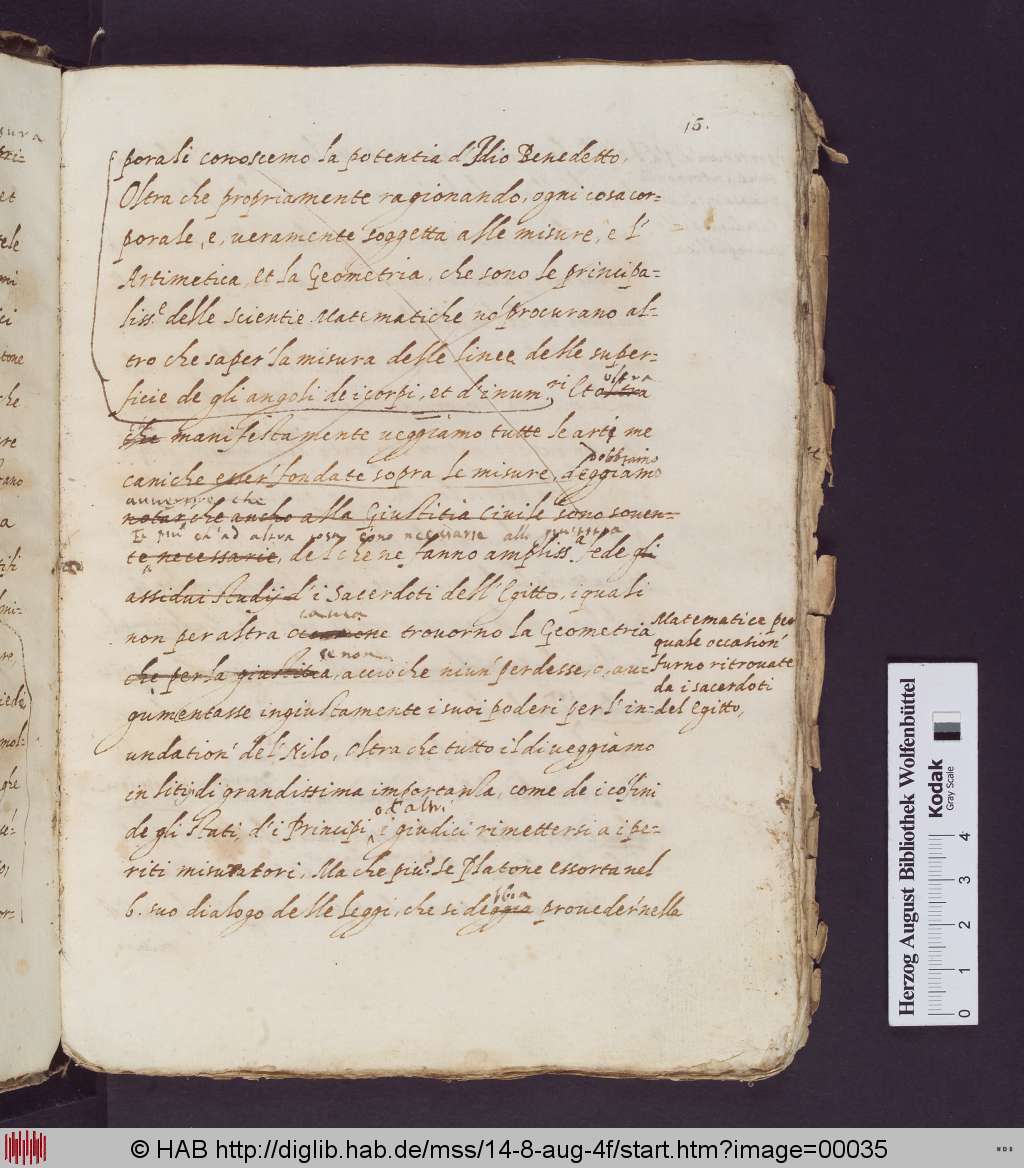 15.
porali conoscemo la potentia d'Idio Benedetto,
Oltra che propriamente ragionando, ogni cosa cor-
porale, e, veramente soggetta alle misure, e l'
Artimetica, et la Geometria, che sono le principa-
liss.e delle scientie Matematiche nó procurano al-
tro che saper' la misura delle linee delle super-
ficie de gli angoli de i corpi, et d'i num.ri Et oltra
oltra
che manifestamente ueggiamo tutte le arti me
caniche esser' fondate sopra le misure, deggiamo
dobbiamo
auuertire che
notar, che ancho alla Giustitia Civile sono soven-
piu ch'ad altra cosa sono necessarie alla giustitia
te necessarie, del che ne fanno ampliss.a fede gli
assidui studij d'i Sacerdoti dell'Egitto, i quali
causa
non per altra occasione trovorno la Geometria
se non
che per la giustitia, accioche niun' perdesse, o, au-
gumentasse ingiustamente i suoi poderi per l'in-
undation' del Nilo, Oltra che tutto il di veggiamo
in liti di grandissima importanza, come de i cófini
o d'altri
de gli stati, d'i Principi, i giudici rimettersi a i pe-
riti misuratori, Ma che piu? se Platone essorta nel
bbia
6. suo dialogo delle leggi, che si deggia proveder' nella
Matematice per
quale occasion'
furno ritrovate
da i sacerdoti
del Egitto,
Herzog August Bibliothek Wolfenbüttel
Kodak
Gray Scale
0 1 2 3 4
© HAB http://diglib.hab.de/mss/14-8-aug-4f/start.htm?image=00035